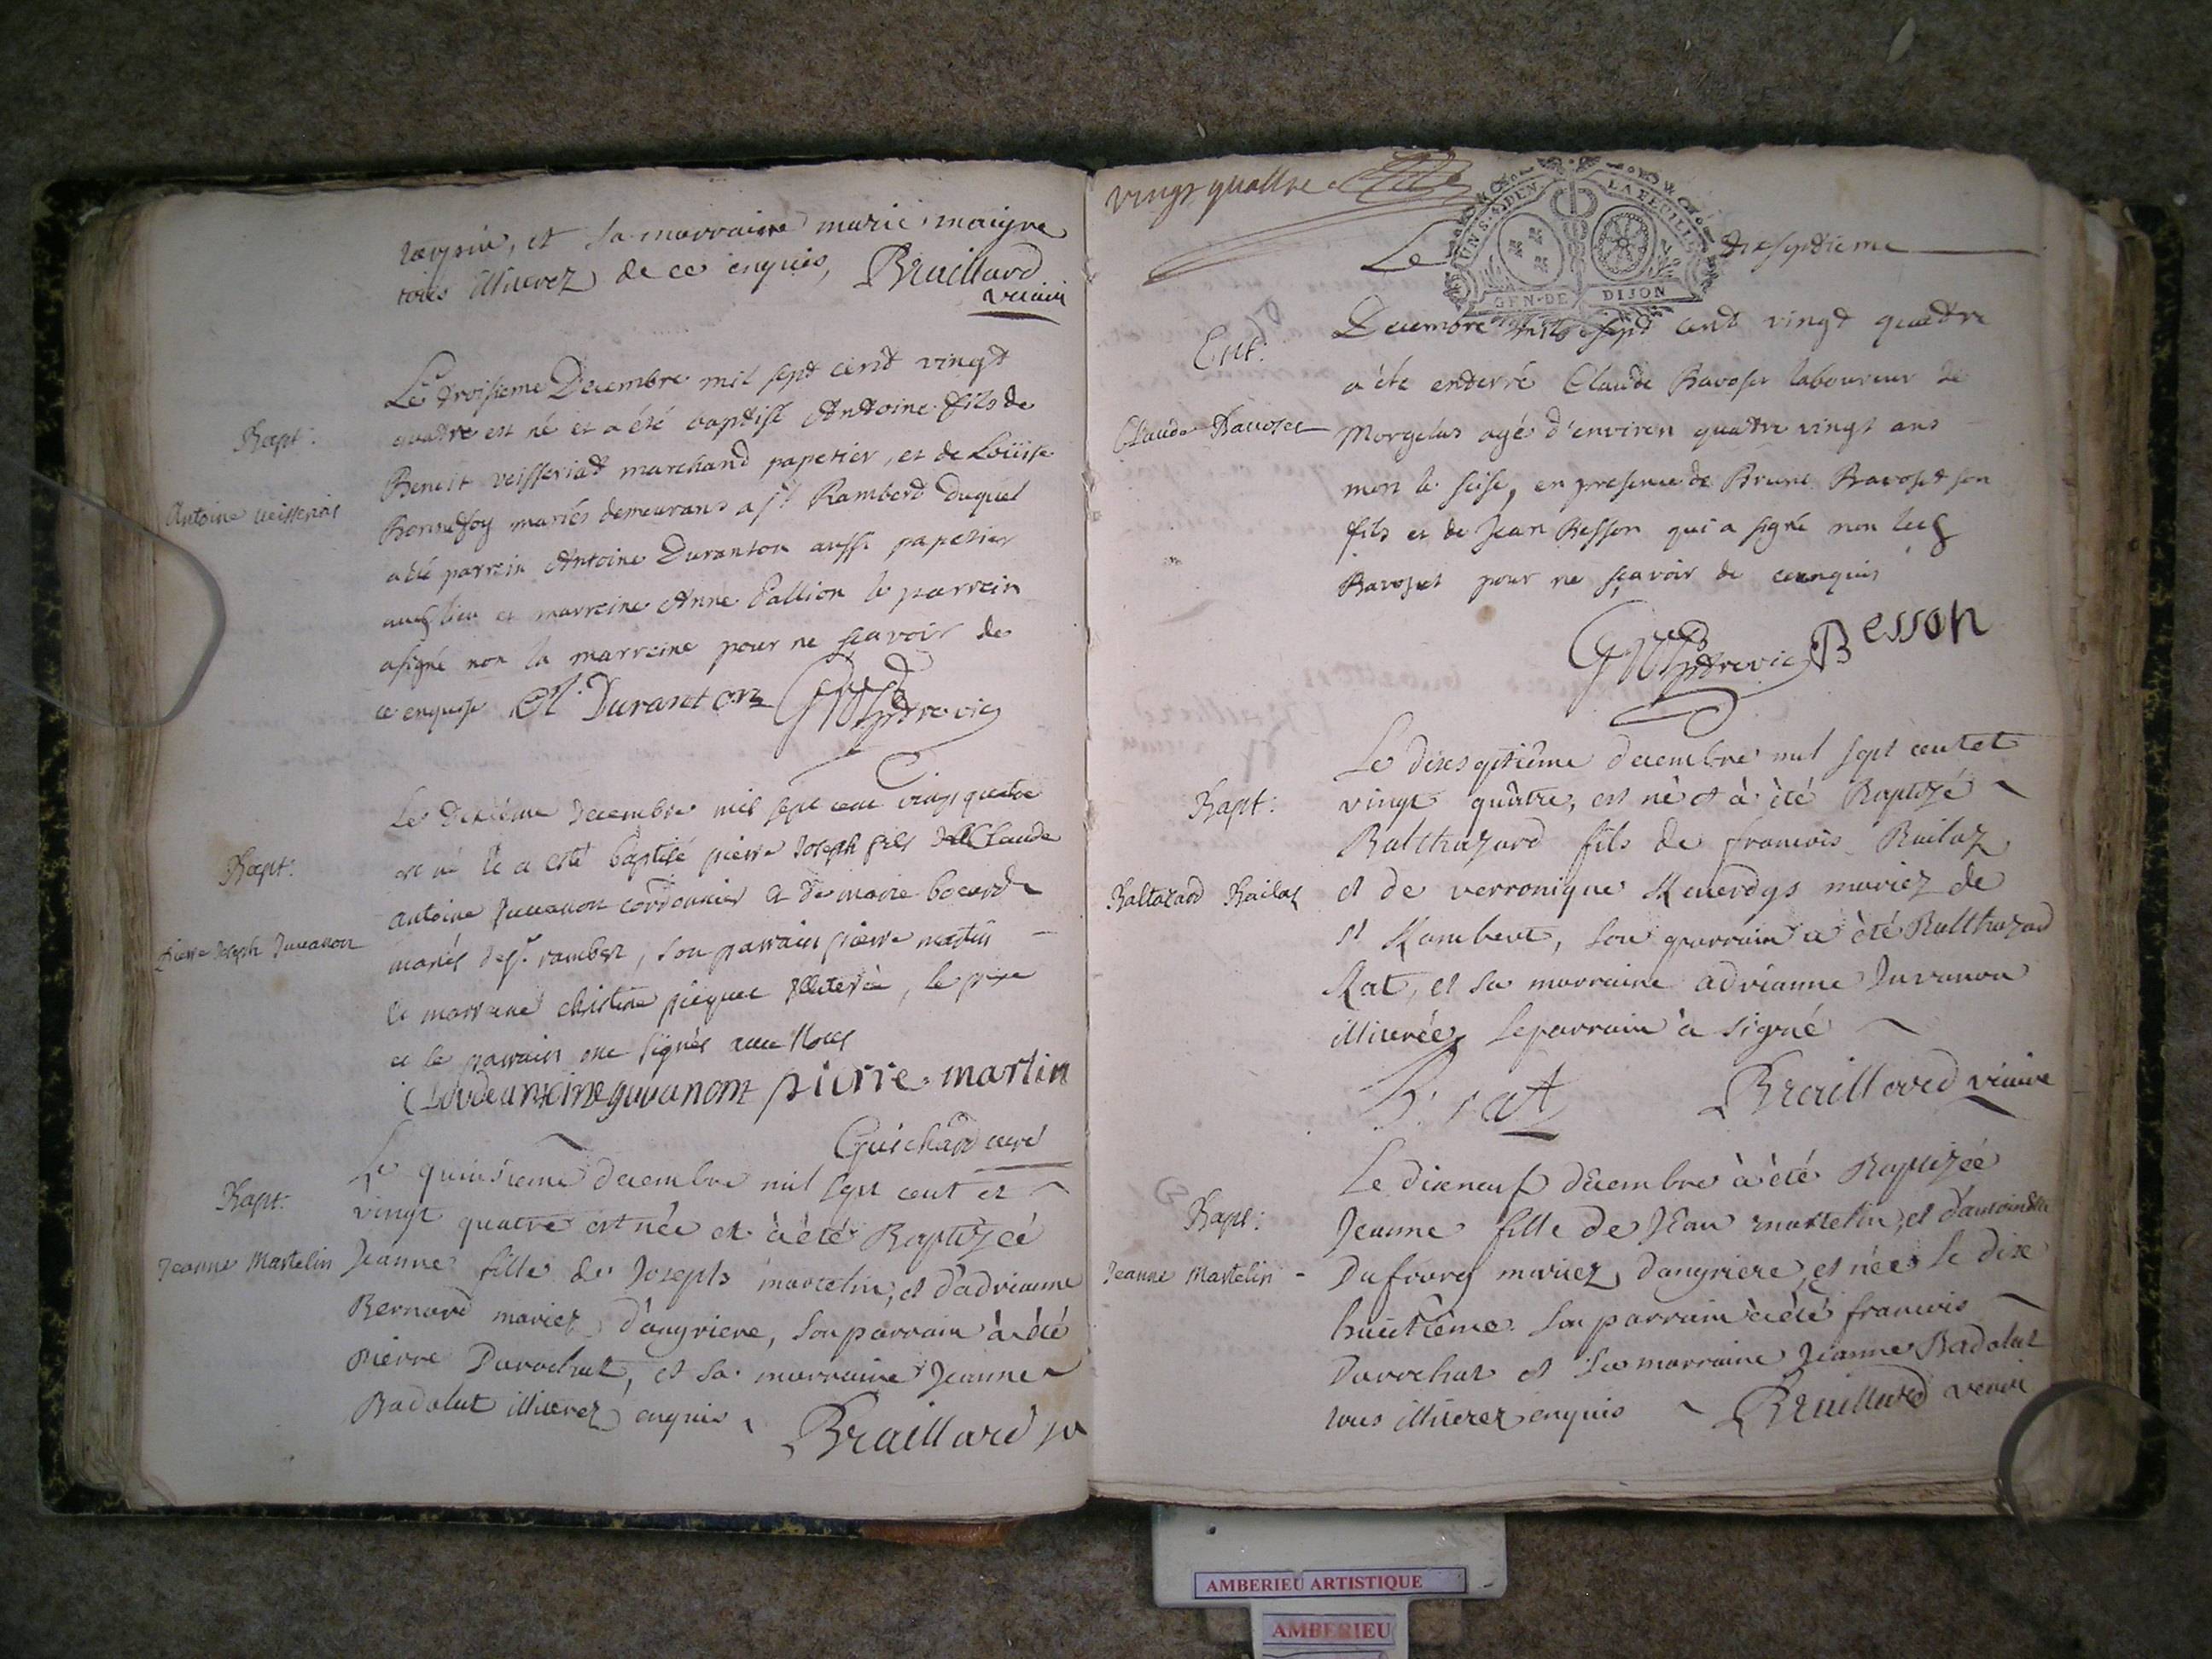 et sa marraine marie maigre
tous illiterez de ce enquis, Braillard
vicaire
Bapt:
Antoine veisseriat
Le troisieme Decembre mil sept cent vingt
quatre est né et a été baptisé Antoine fils de
Benoit veisseriat marchand papetier, et de Loüise
Bonnefoy mariés demeurans a st Rambert duquel
a été parrein Antoine Duranton aussi papetier
audt lieu et marreine Anne Pallion le parrein
a signé non la marreine pour ne scavoir de
ce enquise A. Duranton
Bapt:
Pierre Joseph Juuanon
Le dixieme decembre mil sept cent vingt quatre
est né et a esté baptisé pierre Joseph fils de Claude
antoine Juuanon cordonnier et de marie
mariés de st. rambert, son parrain pierre martin
et marraine christine illiterée, le pere
et le parrain ont signés avec Nous
Cloudeantoine guuanont pierre martin
Guichard curé
Bapt:
Jeanne Martelin
Le quinsieme decembre mil sept cent et
vingt quatre est née et à été Baptizeé
Jeanne fille de Joseph martelin, et d'adrianne
Bernard mariez d'angriere, son parrain à été
pierre Durochat, et sa marraine Jeanne
Badolat illiterez enquis Braillard
vingt quattre
UN S. 4 DEN. LA FEUILLE
GEN·DE DIJON
Le dixseptieme
Ent:
Claude Bavoset
Decembre mil sept cent vingt quatre
a été enterré Claude Bavoset laboureur de
Morgelas agé d'environ quatre vingt ans
mort le seise, en presence de Brune Bavoset son
fils et de Jean Besson qui a signé non ledt
Bavoset pour ne sçavoir de ce enquis
Besson
Bapt:
Baltazard Bailat
Le dixseptième decembre mil sept cent et
vingt quatre, est né et à été Baptizé
Balthazard fils de francois Bailaz
et de verronique mariez de
st Rambert, son parrain a été Balthazard
Rat, et sa marraine adrianne Juvanon
illiterée, le parrain à signé
B. rat Braillard vicaire
Bapt:
Jeanne Martelin
Le dixneuf decembre à été Baptizée
Jeanne fille de Jean martelin, et d'antoinette
Dufour mariez d'angriere, et née le dixe
huictième son parrain a été francois
Durochat et sa marraine Jeanne Badolat
tous illiterez enquis Braillard vicaire
AMBERIEU ARTISTIQUE
AMBERIEU